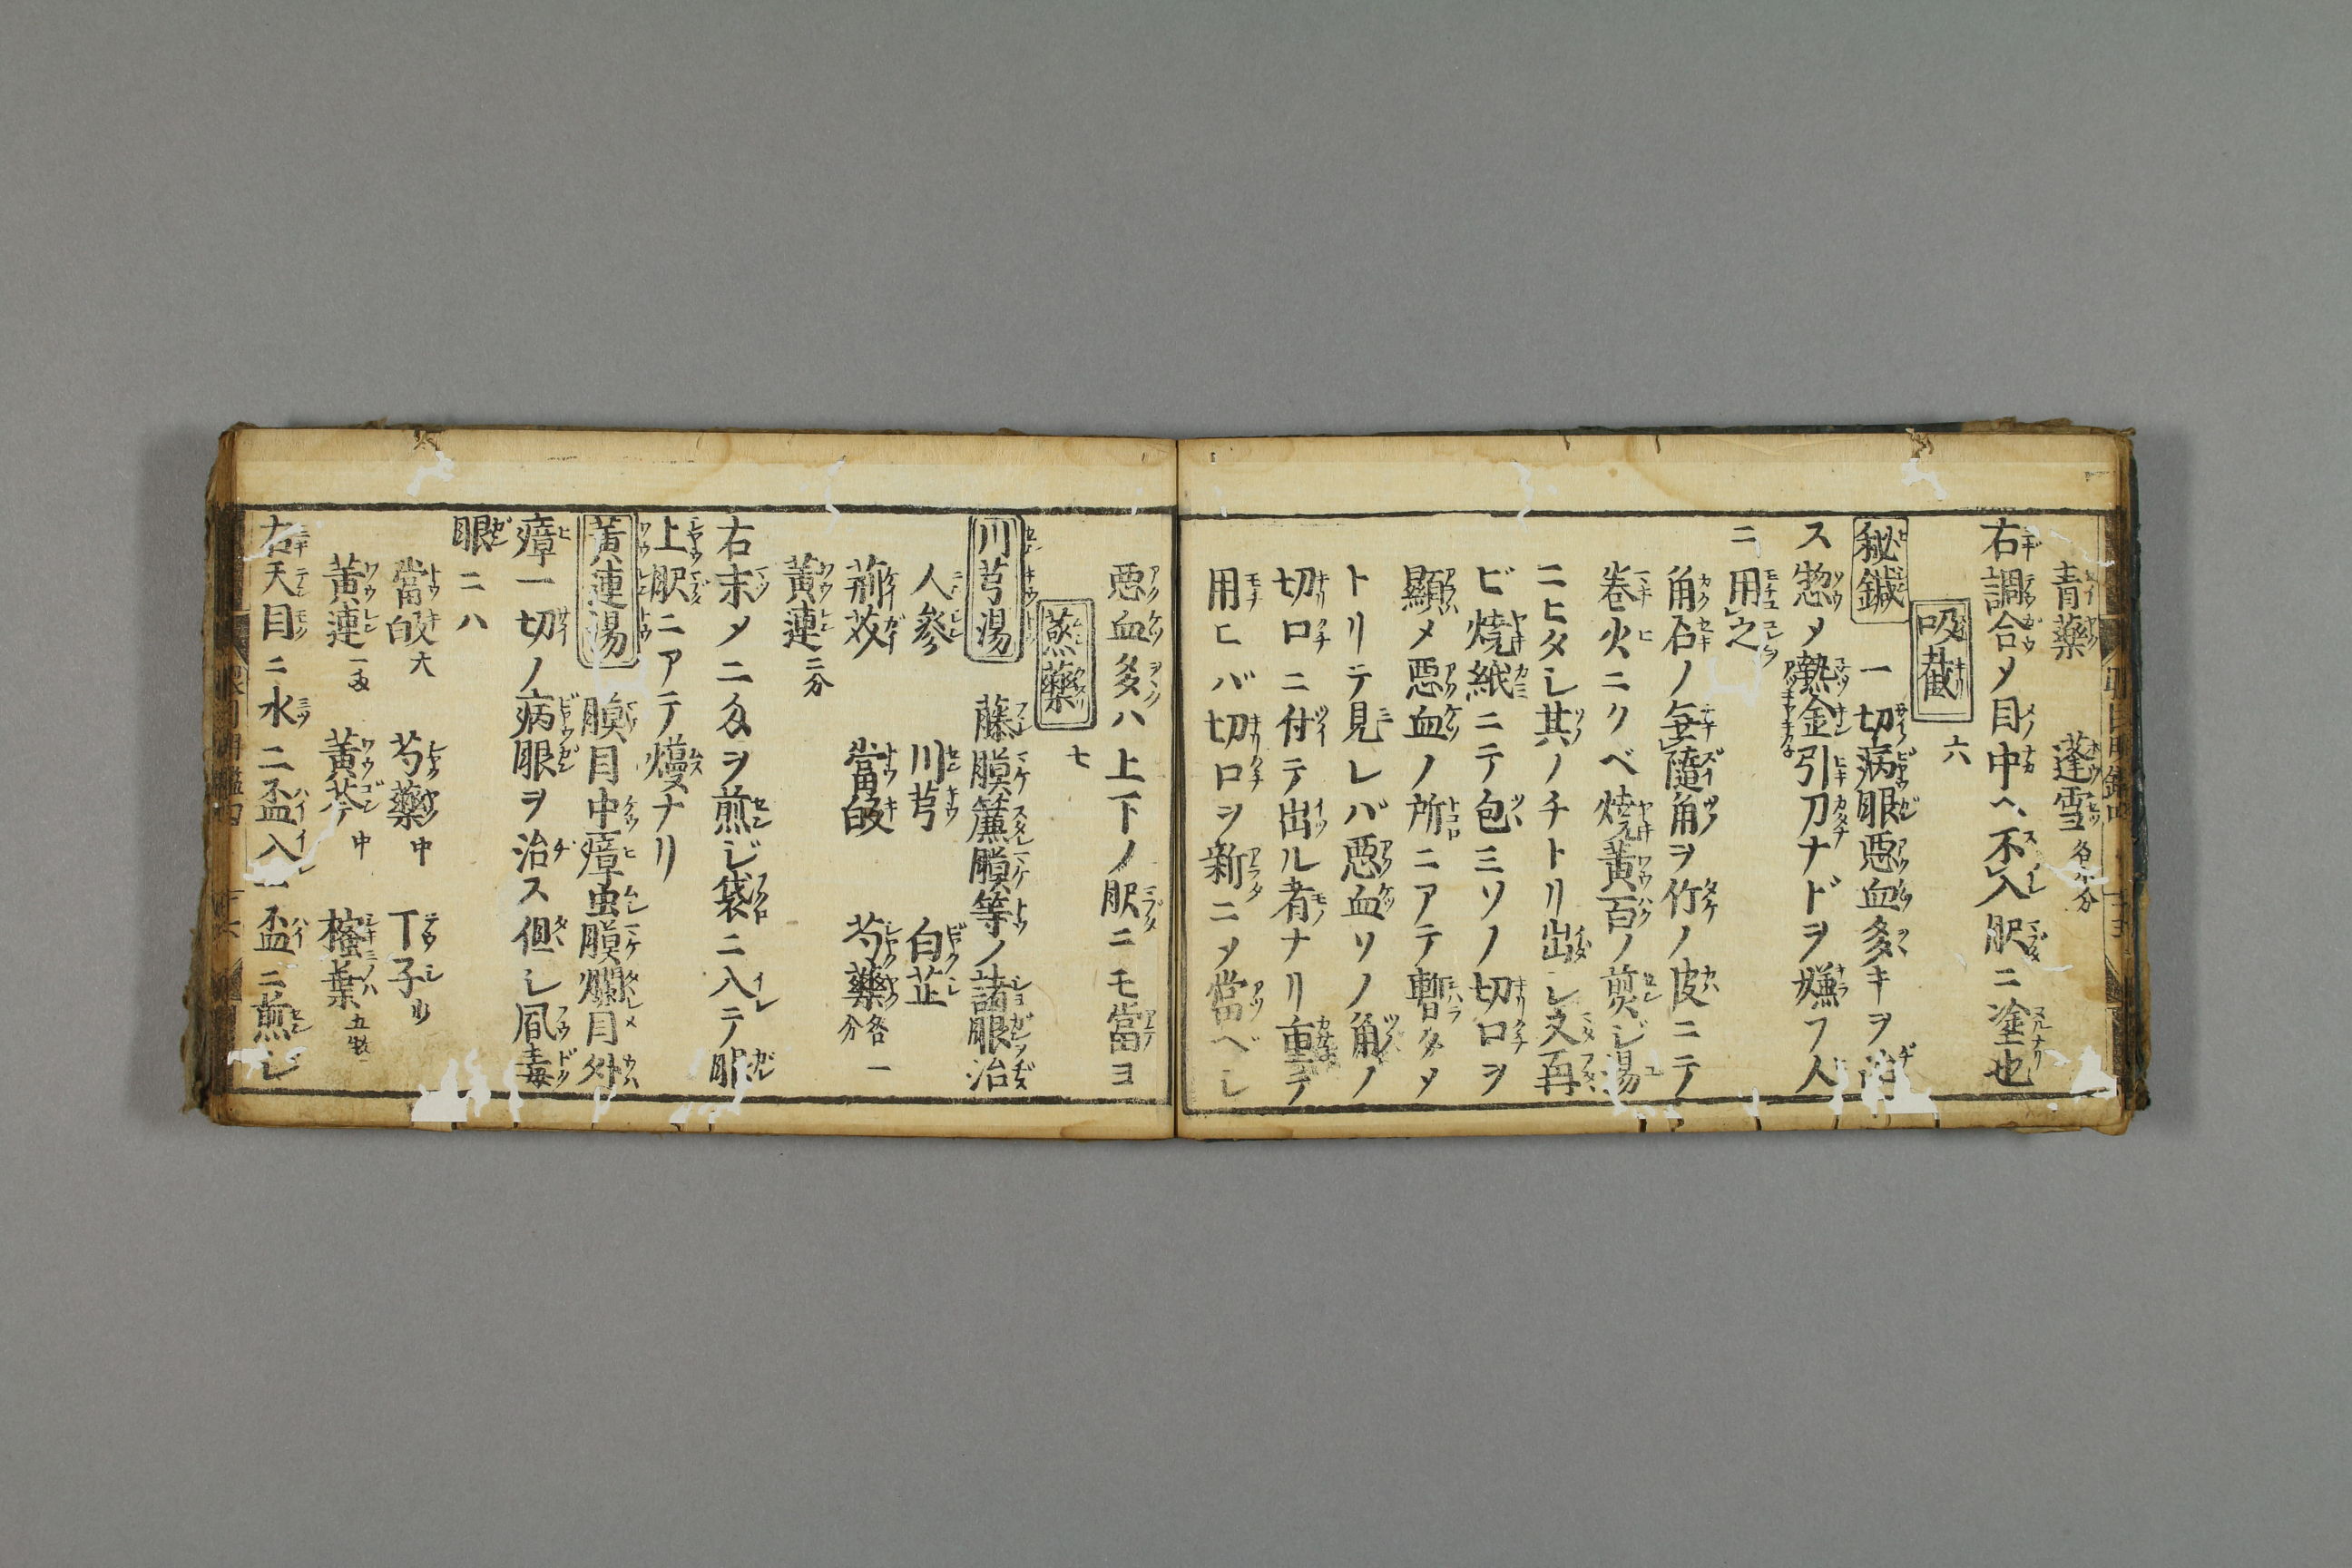 青藥　蓬雪各等分
右調合メ目中ヘ不入眤ニ塗也
吸截　六
秘鍼　一切病眼悪血多キヲ治
ス惣メ熱金引刀ナドヲ嫌フ人
ニ用之
角石ノ無随角ヲ竹ノ皮ニテ
巻火ニクベ燒黄百ノ煎ジ湯
ニヒタし其ノチトリ出し又再
ビ燒紙ニテ包ミソノ切口ヲ
顯メ悪血ノ所ニアテ暫クメ
トリテ見レバ悪血ソノ角ノ
切口ニ付テ出ル者ナリ重テ
用ヒバ切口ヲ新ニメ當ベし
悪血多ハ上下ノ眤ニモ當ヨ
蒸藥　七
川芎湯　藤膜簾膜等ノ諸眼治
人參　川芎　白芷
荊芥　當皈　芍藥各一分
黄連二分
右末メ二久ヲ煎ジ袋ニ入テ眼
上眤ニアテ熳ナリ
黄連湯　腴目中瘴虫膜爛目外
瘴一切ノ病眼ヲ治ス但し風毒
眼ニハ
當皈大　芍藥中　丁子少
黄連一匁　黄芩中　榁葉五
右天目ニ水二盃入一盃ニ煎し